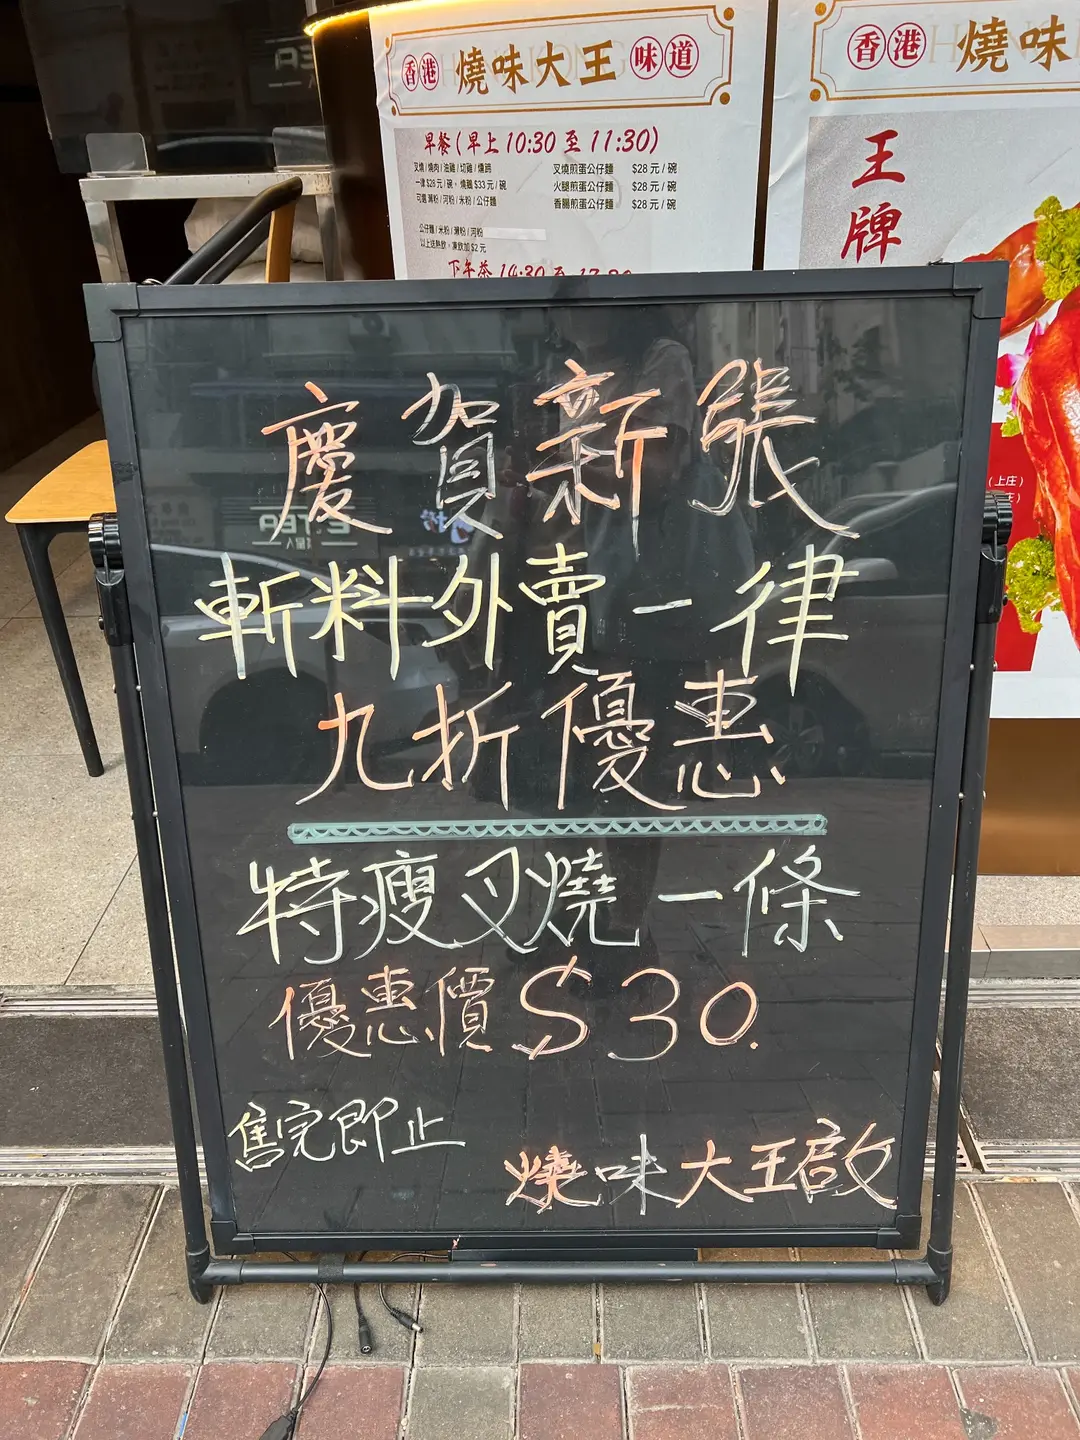 香港 燒味大王 味道
早餐（早上 10:30 至 11:30)
叉燒 / 燒肉 / 油雞 / 切雞 / 燻蹄
一律 $28 元 / 碗，燒鵝 $33 元 / 碗
可選 瀨粉 / 河粉 / 米粉 / 公仔麵
叉燒煎蛋公仔麵 $28 元 / 碗
火腿煎蛋公仔麵 $28 元 / 碗
香腸煎蛋公仔麵 $28 元 / 碗
公仔麵 / 米粉 / 瀨粉 / 河粉
以上送熱飲，凍飲加 $2 元
下午茶 14:30 至
香港 燒味
王牌
（上庄）
慶賀新張
斬料外賣一律
九折優惠
特瘦叉燒一條
優惠價 $30.
售完即止
燒味大王啟